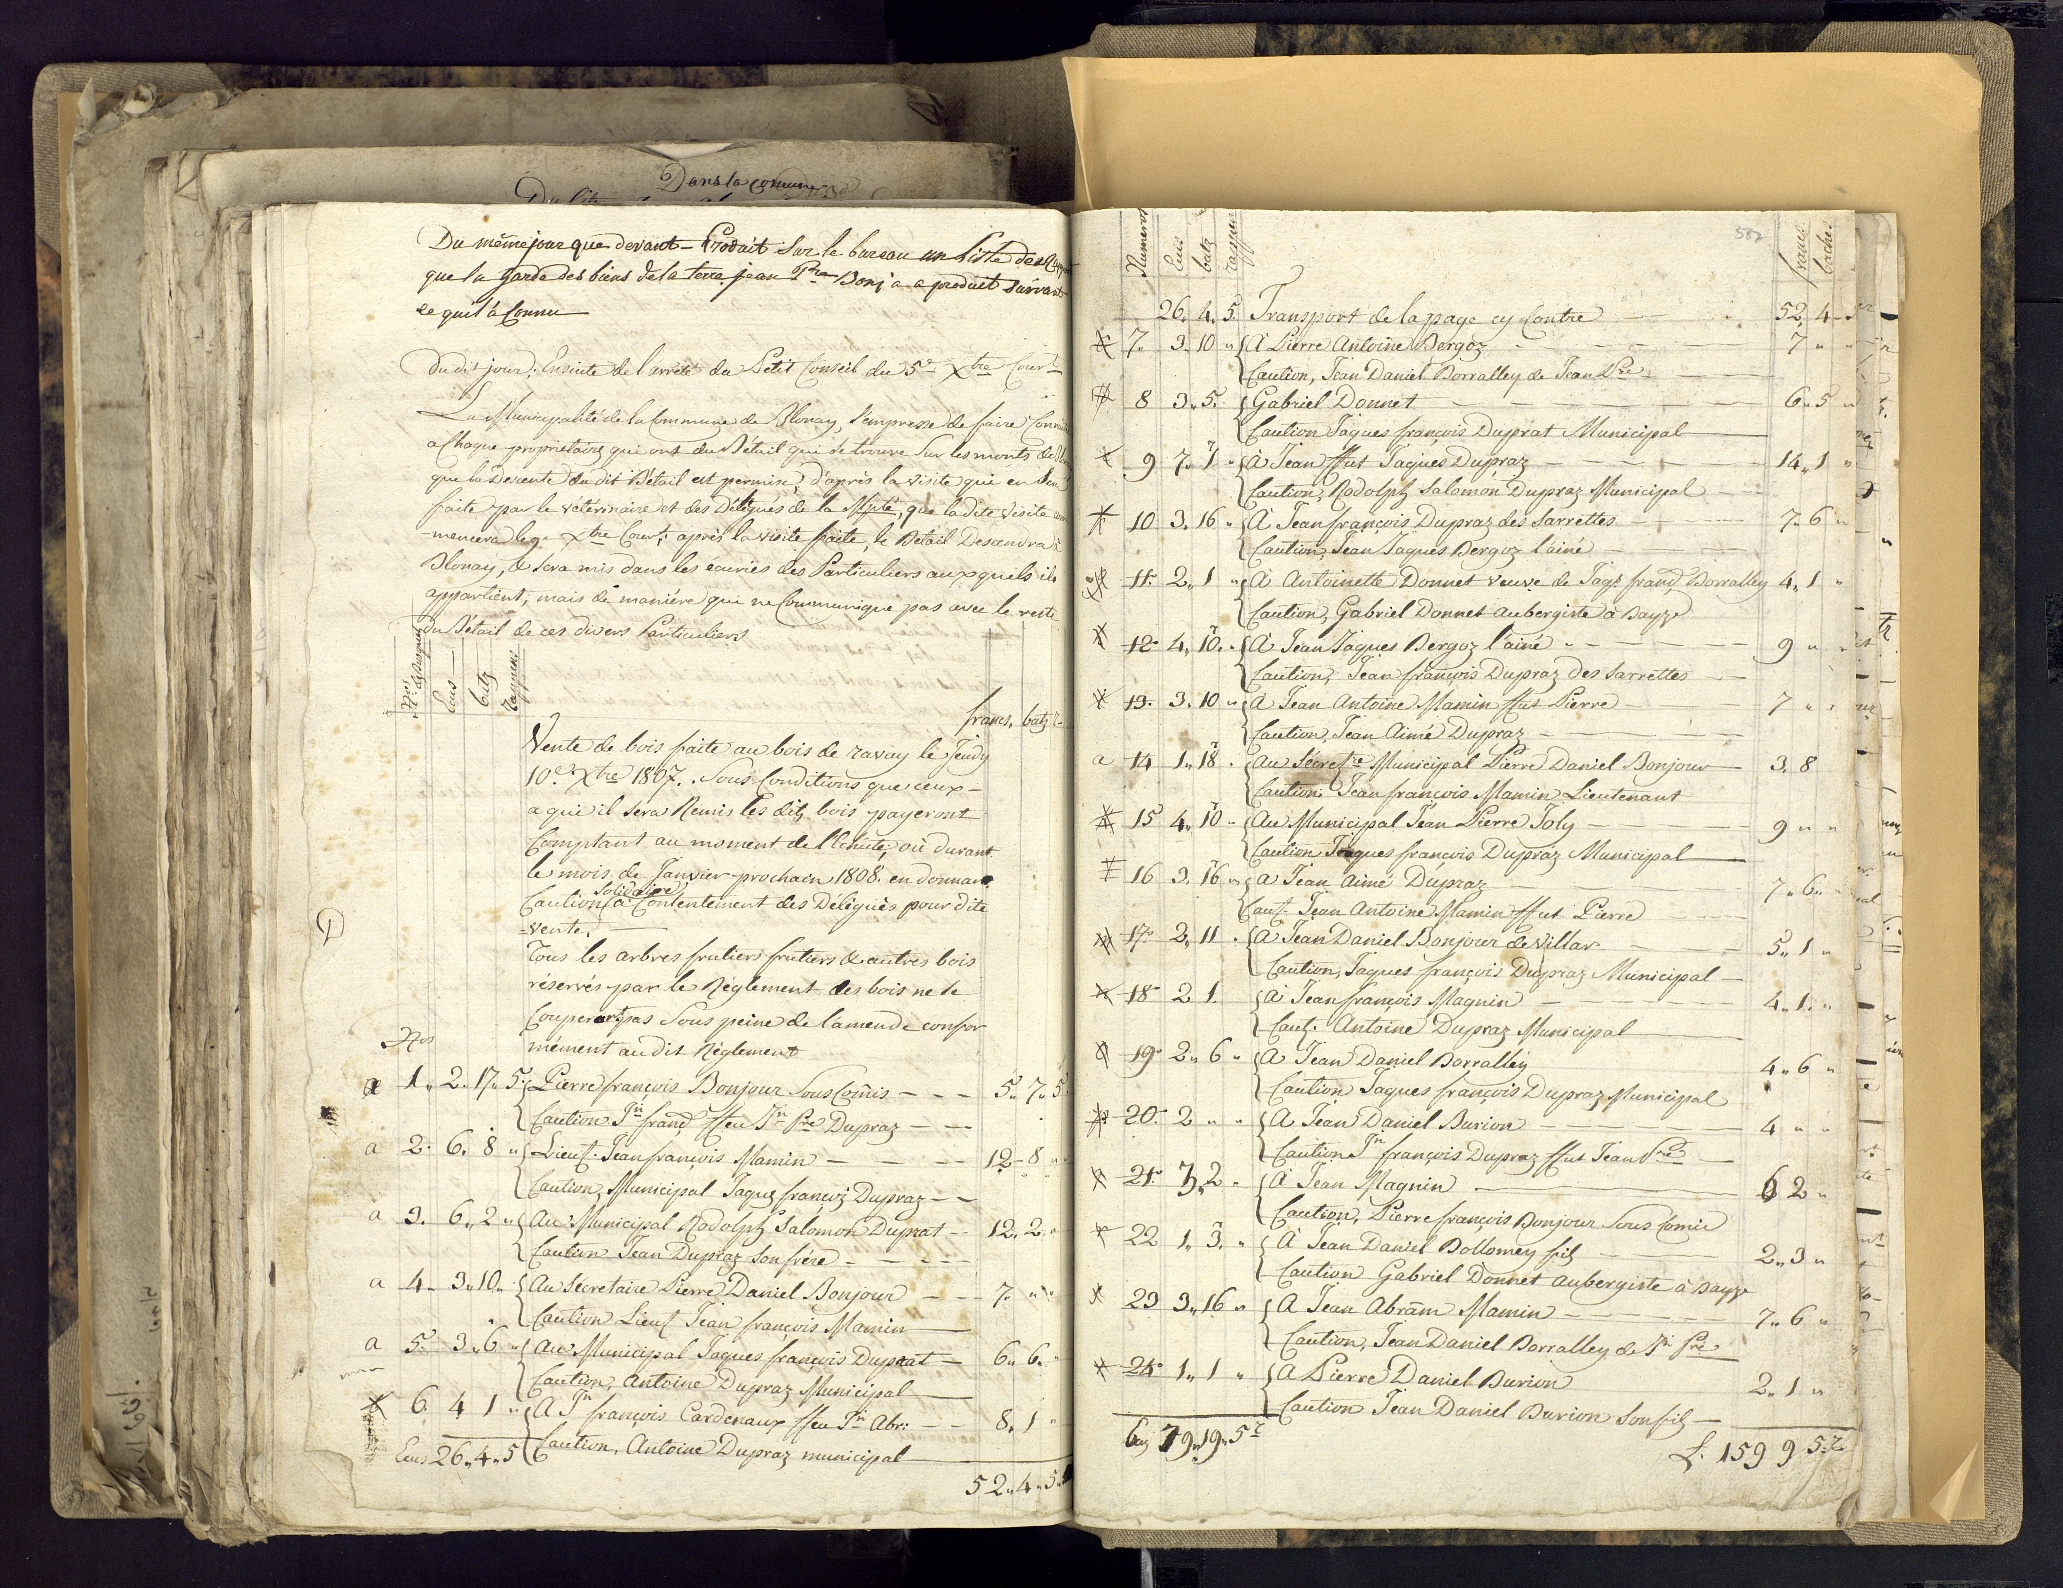 Dans la comune
Du même jour que devant - Produit Sur le bureau un Liste des
que la garde des biens de la terre jean Pre Bonj a a produit suivant
ce quil à Connu
Du dit jour, Ensuite de l'arrêté du Petit Conseil du 5e Xbre Cour't
La Municipalité de la Commune de Blonay, s'empresse de faire
a Chaque proprietaire qui ont du Bétail qui se trouve Sur les monts de
que la Descente du dit Bétail est permise, d'après la visite qui en
faite par le vétérinaire et des Délégués de la Mplé, que la dite visite
-mencera le 9e Xbre Cour't; après la visite faite, le Bétail Descendra à
Blonay, & sera mis dans les écuries des Particuliers auxquels ils
appartient, mais de manière qui ne Communique pas avec le reste
du Bétail de ces divers Particuliers
Nos
Ecus
batz
rappens
francs. batz r.
Vente de bois faite au bois de ravay le Jeudy
10e Xbre 1807. Sous Conditions que ceux-
a qui il sera Remis les dits bois payeront
Comptant au moment de l'Echute, où durant
le mois de Janvier prochain 1808. en donnant
Solidaire
Caution à Contentement des Délégués pour dite
-vente.
Tous les arbres frutiers frutiers & autres bois
réservés par le Règlement des bois ne se
Couperont pas Sous peine de l'amende confor
mément au dit Règlement
Nos
a 1. 2. 17. 5. Pierre françois Bonjour Sous Comis - - - 5. 7. 5.
Caution Jn franç ffeu Jn Pre Dupraz - -
a 2. 6. 8 " Lieut. Jean françois Mamin - - - - 12 - 8
Caution, Municipal Jaques françois Dupraz - -
a 3. 6. 2 " Au Municipal Rodolph Salomon Duprat - 12. 2.
Caution Jean Dupraz Son frère - - - -
a 4. 3. 10. Au Secretaire Pierre Daniel Bonjour - - 7. " "
Caution Lieut Jean françois Mamin
a 5. 3. 6 " Au Municipal Jaques françois Duprat - 6. 6.
Caution, Antoine Dupraz Municipal
6 4 1 " A Jn françois Cardenaux ffeu Jn Abr: - - 8. 1 "
Ecus 26. 4. 5 Caution, Antoine Dupraz municipal
52. 4. 5
587
Numeros
Ecus
batz
rappen
francs
bache
26. 4. 5. Transport de la page cy Contre - 52. 4 - 5r
7. 3. 10 " A Pierre Antoine Bergoz - - - 7 " "
Caution, Jean Daniel Borralley de Jean Pre
8 3. 5. Gabriel Donnet - - - 6. 5 "
Caution Jaques françois Duprat Municipal
9 7. 1 " A Jean ffut Jaques Dupraz - - - 14. 1 "
Caution, Rodolph Salomon Dupraz Municipal
10 3. 16 " A Jean françois Dupraz des Sarrettes - - 7. 6 "
Caution, Jean Jaques Bergoz l'ainé
11. 2. 1 " A Antoinette Donnet veuve de Jaqs franç Borralley 4. 1 "
Caution, Gabriel Donnet aubergiste à Bayze
12. 4. 10. " A Jean Jaques Bergoz l'ainé - - - 9 "
Caution, Jean françois Dupraz des Sarrettes
13. 3. 10 " A Jean Antoine Mamin ffut Pierre - 7 " "
Caution, Jean Aimé Dupraz
a 14 1. 18 . Au Secretre Municipal Pierre Daniel Bonjour 3. 8
Caution Jean françois Mamin Lieutenant
15 4. 10 " Au Municipal Jean Pierre Joly - - - 9 " "
Caution Jaques françois Dupraz Municipal
16 3. 16 " A Jean Aimé Dupraz - - 7. 6 "
Caut. Jean Antoine Mamin ffut Pierre
17. 2. 11 . A Jean Daniel Bonjour de Villar - 5. 1 "
Caution, Jaques françois Dupraz Municipal -
18. 2 1. A Jean françois Magnin - - - 4. 1. "
Caut. Antoine Dupraz Municipal
19. 2. 6 " A Jean Daniel Borralley 4. 6 "
Caution Jaques françois Dupraz Municipal
20. 2 " " A Jean Daniel Burion - - - 4 " "
Caution Jn françois Dupraz ffut Jean Pre
21. 3. 2 . A Jean Magnin - 6 2 "
Caution, Pierre françois Bonjour Sous Comis
22 1. 3. " A Jean Daniel Bollomey fils - - 2. 3 "
Caution Gabriel Donnet aubergiste à Bayze
23 3. 16 " A Jean Abram Mamin - - - 7. 6 "
Caution, Jean Daniel Borralley de Jn Pre
24. 1. 1 " A Pierre Daniel Burion 2. 1 "
Caution Jean Daniel Burion Son fils -
79. 19. 5r L. 159 9 5. r